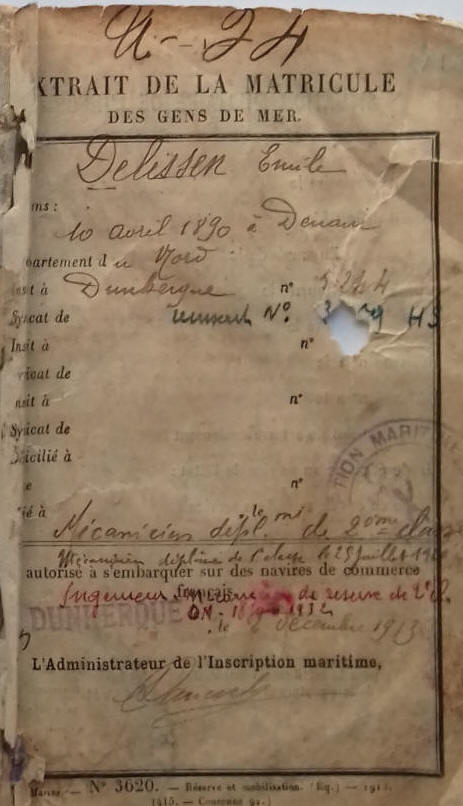 N-24
XTRAIT DE LA MATRICULE
DES GENS DE MER.
Delissen Emile
ms :
10 avril 1890 à Denain
partement du Nord
nsit à Dunkerque n° 5244
Syndicat de N° 3 79 HS
Insit à n°
ndicat de
nsit à n°
Syndicat de
icilié à
e n°
le
ié à
Mécanicien dipl. mé de 2ème classe
Mécanicien diplômé de 1e classe le 25 juillet 19
autorisé à s'embarquer sur des navires de commerce
français
Ingénieur Mécanicien de réserve de 2e cl.
DUNKERQUE
1932
le 2 décembre 1913
L'Administrateur de l'Inscription maritime,
TION MARIT
Marine — N° 3620. — Réserve et mobilisation. (Eq.) — 191
(415. — Couronne 91.)